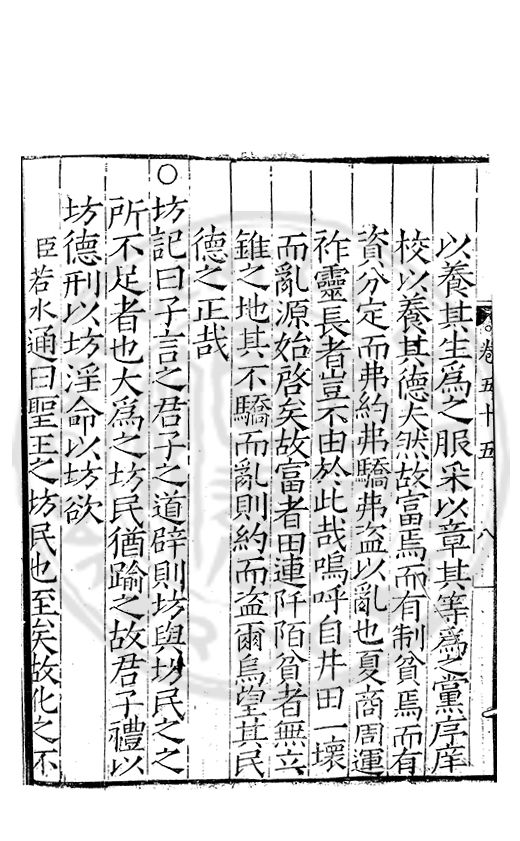 卷五十五 八
以養其生爲之服采以章其等爲之黨序庠
校以養其德夫然故富焉而有制貧焉而有
資分定而弗約弗驕弗盜以亂也夏商周運
祚靈長者豈不由於此哉嗚呼自井田一壞
而亂源始啓矣故富者田連阡陌貧者無立
錐之地其不驕而亂則約而盜爾烏望其民
德之正哉
○坊記曰子言之君子之道辟則坊與坊民之
所不足者也大爲之坊民猶踰之故君子禮以
坊德刑以坊淫命以坊欲
臣若水通曰聖王之坊民也至矣故化之不